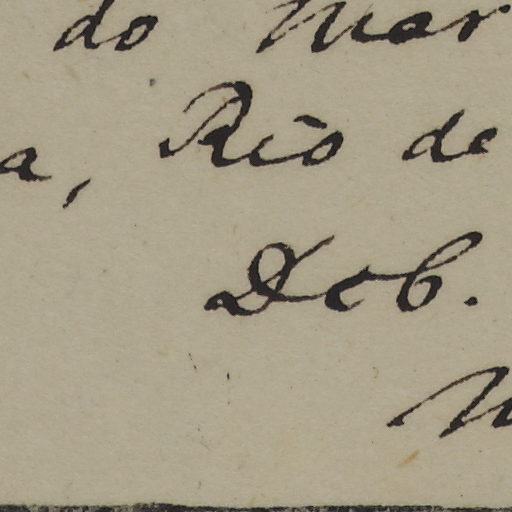 do Mar
a, Rio de
Feb.